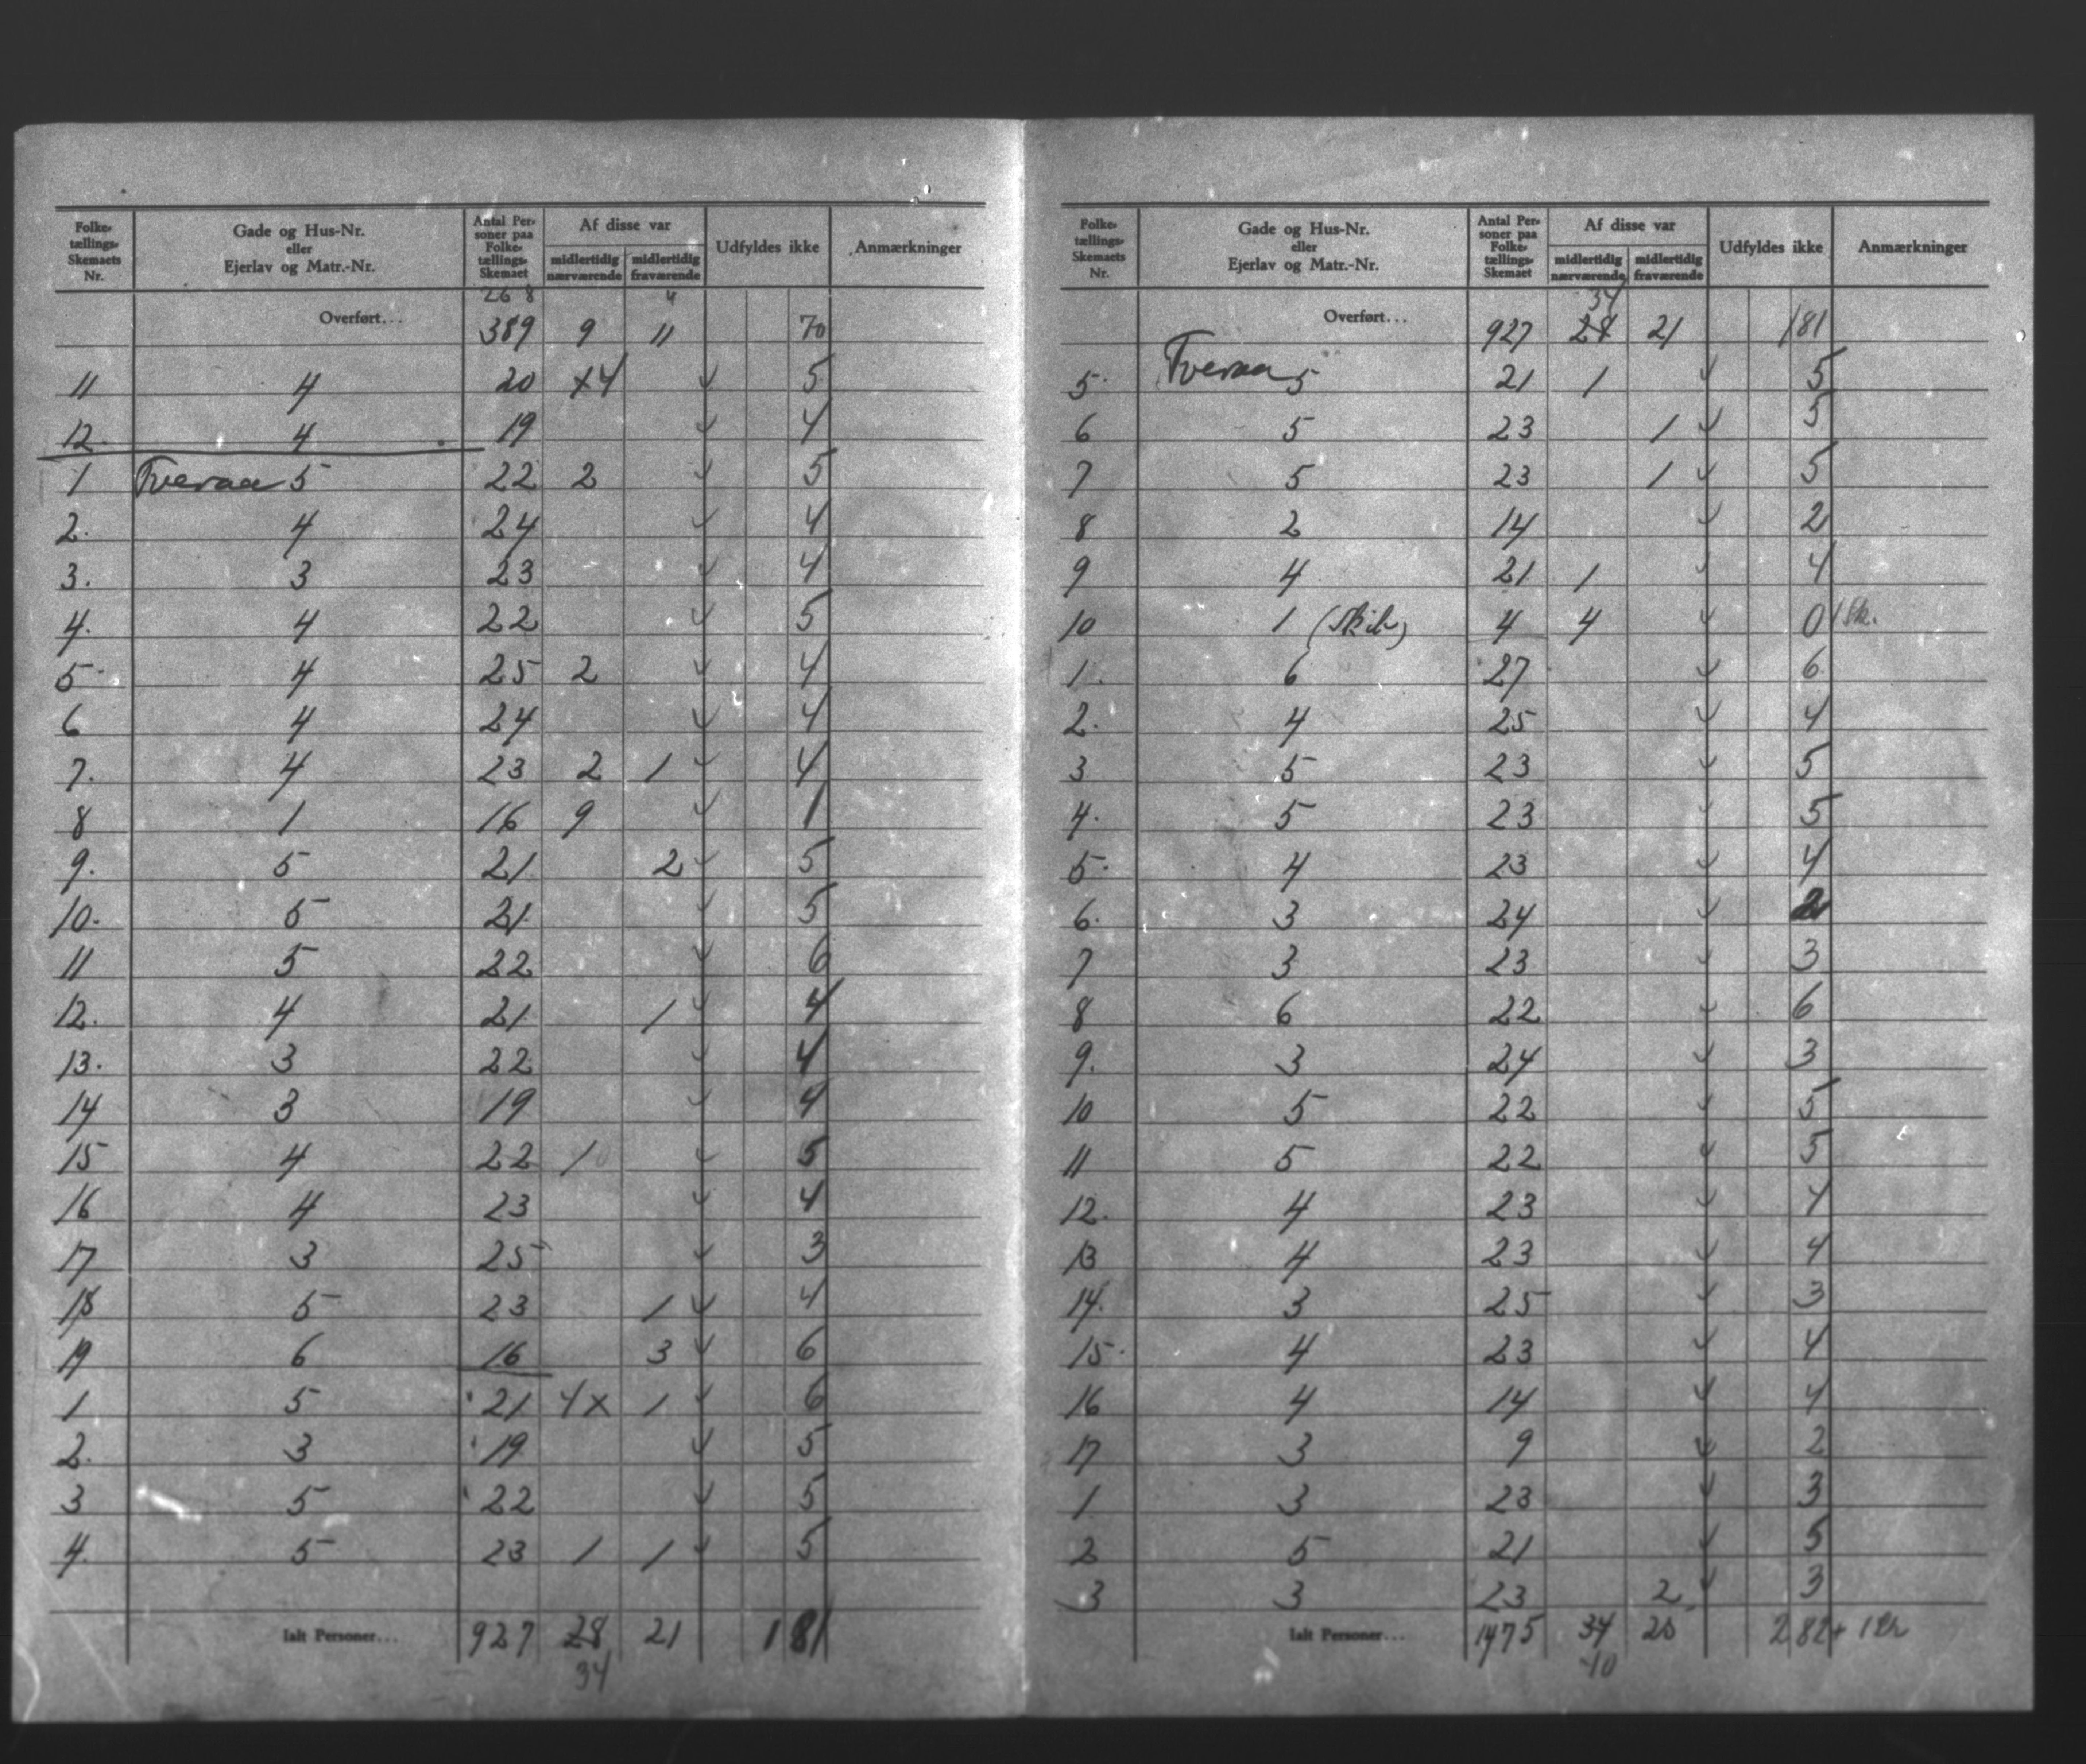 Folke-tællings-Skemaets Nr. | Gade og Hus-Nr. eller Ejerlav og Matr.-Nr. | Antal Personer paa Folke-tællings-Skemaet | Af disse var midlertidig nærværende | midlertidig fraværende | Udfyldes ikke | Anmærkninger
268 4
Overført... 389 9 11 70
11 4 20 x4 5
12. 4 19 4
1 Tveraa 5 22 2 5
2. 4 24 4
3. 3 23 4
4. 4 22 5
5. 4 25 2 4
6 4 24 4
7. 4 23 2 1 4
8 1 16 9 1
9. 5 21 2 5
10. 5 21 5
11 5 22 6
12. 4 21 1 4
13. 3 22 4
14 3 19 4
15 4 22 1 5
16 4 23 4
17 3 25 3
18 5 23 1 4
19 6 16 3 6
1 5 21 4x 1 6
2. 3 19 5
3 5 22 5
4. 5 23 1 1 5
Ialt Personer... 927 28 21 181
34
Folke-tællings-Skemaets Nr. | Gade og Hus-Nr. eller Ejerlav og Matr.-Nr. | Antal Personer paa Folke-tællings-Skemaet | Af disse var midlertidig nærværende | midlertidig fraværende | Udfyldes ikke | Anmærkninger
34
Overført... 927 28 21 181
5. Tveraa 5 21 1 5
6 5 23 1 5
7 5 23 1 5
8 2 14 2
9 4 21 1 4
10 1 (Skib) 4 4 0 1 Sk.
1. 6 27 6
2. 4 25 4
3 5 23 5
4. 5 23 5
5. 4 23 4
6. 3 24 2
7 3 23 3
8 6 22 6
9. 3 24 3
10 5 22 5
11 5 22 5
12. 4 23 4
13 4 23 4
14. 3 25 3
15. 4 23 4
16 4 14 4
17 3 9 2
1 3 23 3
2 5 21 5
3 3 23 2 3
Ialt Personer... 1475 34 25 282 +
40